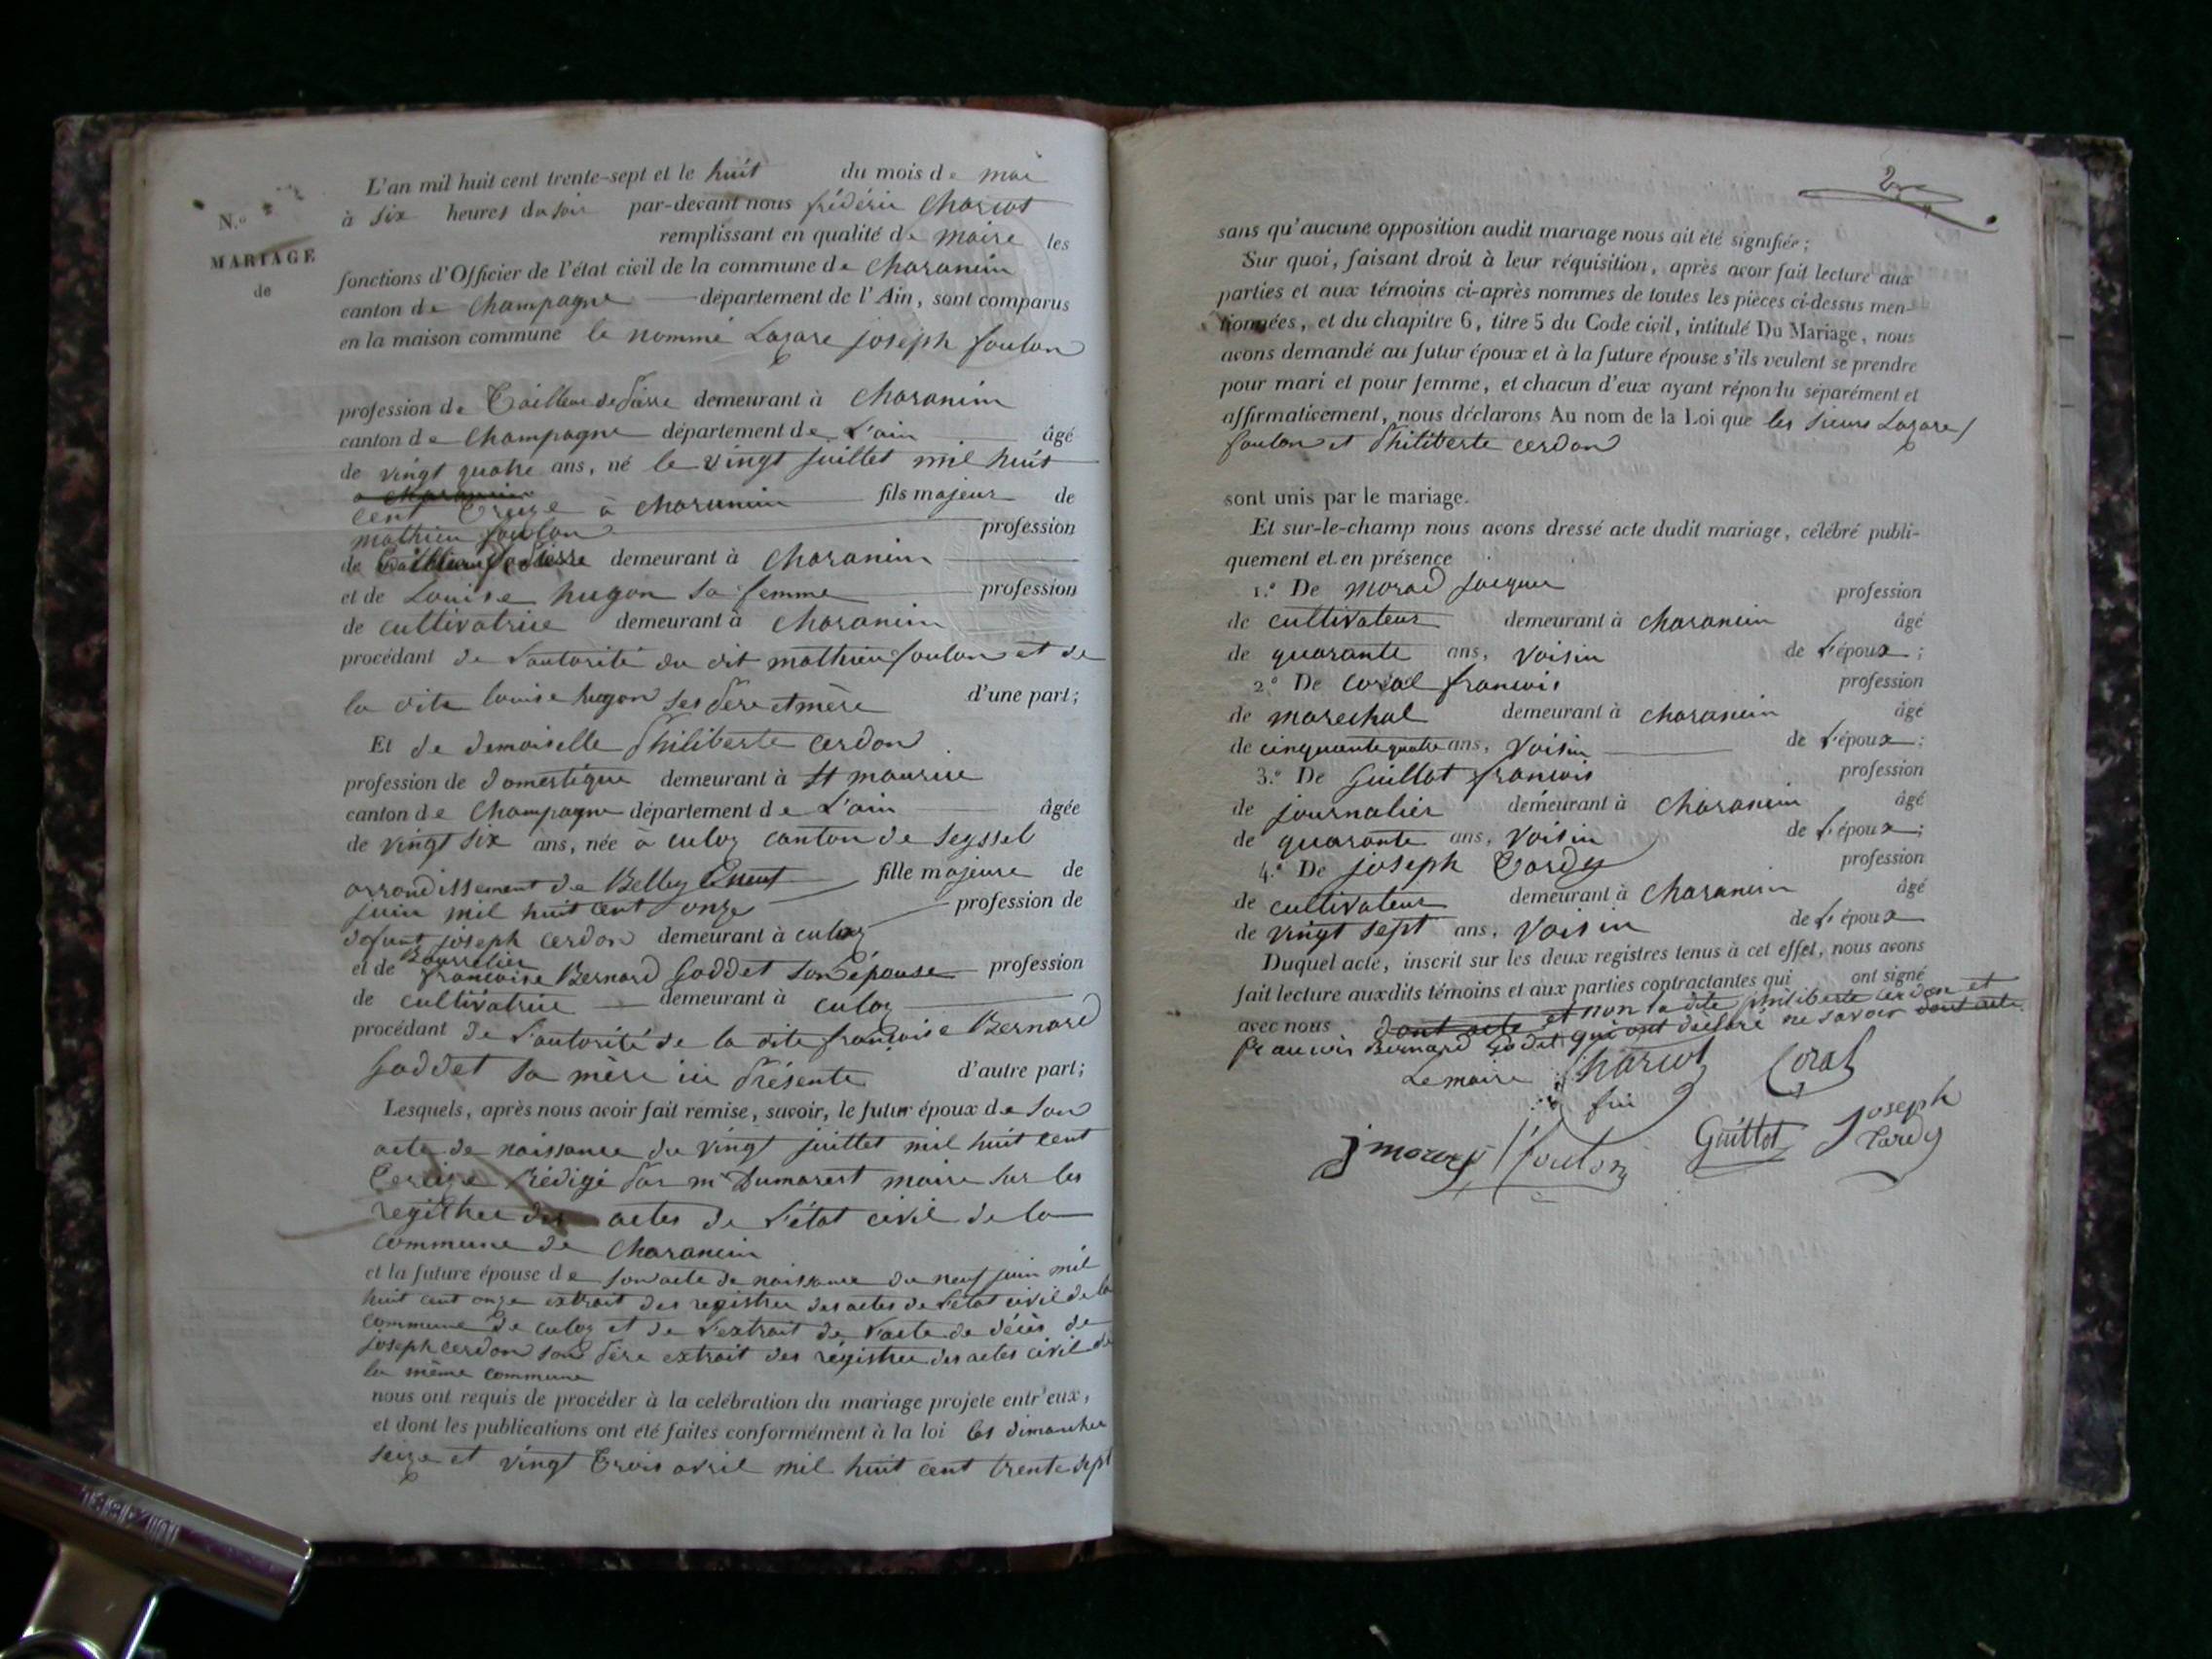 N.º
MARIAGE
de
L'an mil huit cent trente-sept et le huit du mois de mai
à six heures du soir par-devant nous frédéric Charcot
remplissant en qualité de maire les
fonctions d'Officier de l'état civil de la commune de Charancin
canton de Champagne département de l'Ain, sont comparus
en la maison commune le nommé Lazare joseph foulon
profession de Tailleur de Pierre demeurant à Charancin
canton de Champagne département de L'ain âgé
de vingt quatre ans, né le vingt juillet mil huit
a Charancin
cent Treize à Charancin fils majeur de
mathieu foulon profession
de Tailleur de Pierre demeurant à Charancin
et de Louise hugon sa femme profession
de cultivatrice demeurant à Charancin
procédant de L'autorité du dit mathieu foulon et de
la dite louise hugon ses Père et mère d'une part;
Et de demoiselle Philiberte cerdon
profession de domestique demeurant à St maurice
canton de Champagne département de L'ain âgée
de vingt six ans, née à culoz canton de Seyssel
arrondissement de Belley Le neuf fille majeure de
juin mil huit cent onze profession de
defunt joseph cerdon demeurant à culoz
Bourrelier
et de françoise Bernard Goddet son épouse profession
de cultivatrice demeurant à culoz
procédant de L'autorité de la dite françoise Bernard
Goddet sa mère ici Présente d'autre part;
Lesquels, après nous avoir fait remise, savoir, le futur époux de son
acte de naissance du vingt juillet mil huit cent
Treize Rédigé Par mr Dumarest maire sur les
registres des actes de L'état civil de la
commune de Charancin
et la future épouse de son acte de naissance du neuf juin mil
huit cent onze extrait des registres des actes de L'état civil de la
commune de culoz et de L'extrait de L'acte de décès de
joseph cerdon son Père extrait des régistres des actes civil de
la même commune
nous ont requis de procéder à la celébration du mariage projeté entr'eux,
et dont les publications ont été faites conformément à la loi les dimanches
seize et vingt Trois avril mil huit cent trente sept
2
sans qu'aucune opposition audit mariage nous ait été signifiée;
Sur quoi, faisant droit à leur réquisition, après avoir fait lecture aux
parties et aux témoins ci-après nommés de toutes les pièces ci-dessus men-
tionnées, et du chapitre 6, titre 5 du Code civil, intitulé Du Mariage, nous
avons demandé au futur époux et à la future épouse s'ils veulent se prendre
pour mari et pour femme, et chacun d'eux ayant répondu séparément et
affirmativement, nous déclarons Au nom de la Loi que les sieurs Lazare
foulon et Philiberte cerdon
sont unis par le mariage.
Et sur-le-champ nous avons dressé acte dudit mariage, célébré publi-
quement et en présence
1.º De Jacques profession
de cultivateur demeurant à Charancin âgé
de quarante ans, Voisin de L'époux;
2.º De Coral francois profession
de marechal demeurant à charancin âgé
de cinquante quatre ans, Voisin de L'époux;
3.º De Guillot francois profession
de journalier demeurant à Charancin âgé
de quarante ans, Voisin de L'époux;
4.º De joseph Tardy profession
de cultivateur demeurant à Charancin âgé
de vingt sept ans, Voisin de L'époux
Duquel acte, inscrit sur les deux registres tenus à cet effet, nous avons
fait lecture auxdits témoins et aux parties contractantes qui ont signé
avec nous dont acte et non la dite philiberte cerdon et
francois Bernard Godet qui ont déclaré ne savoir dont acte
Le maire Charcot Coral
Foulon Guillot Joseph
Tardy